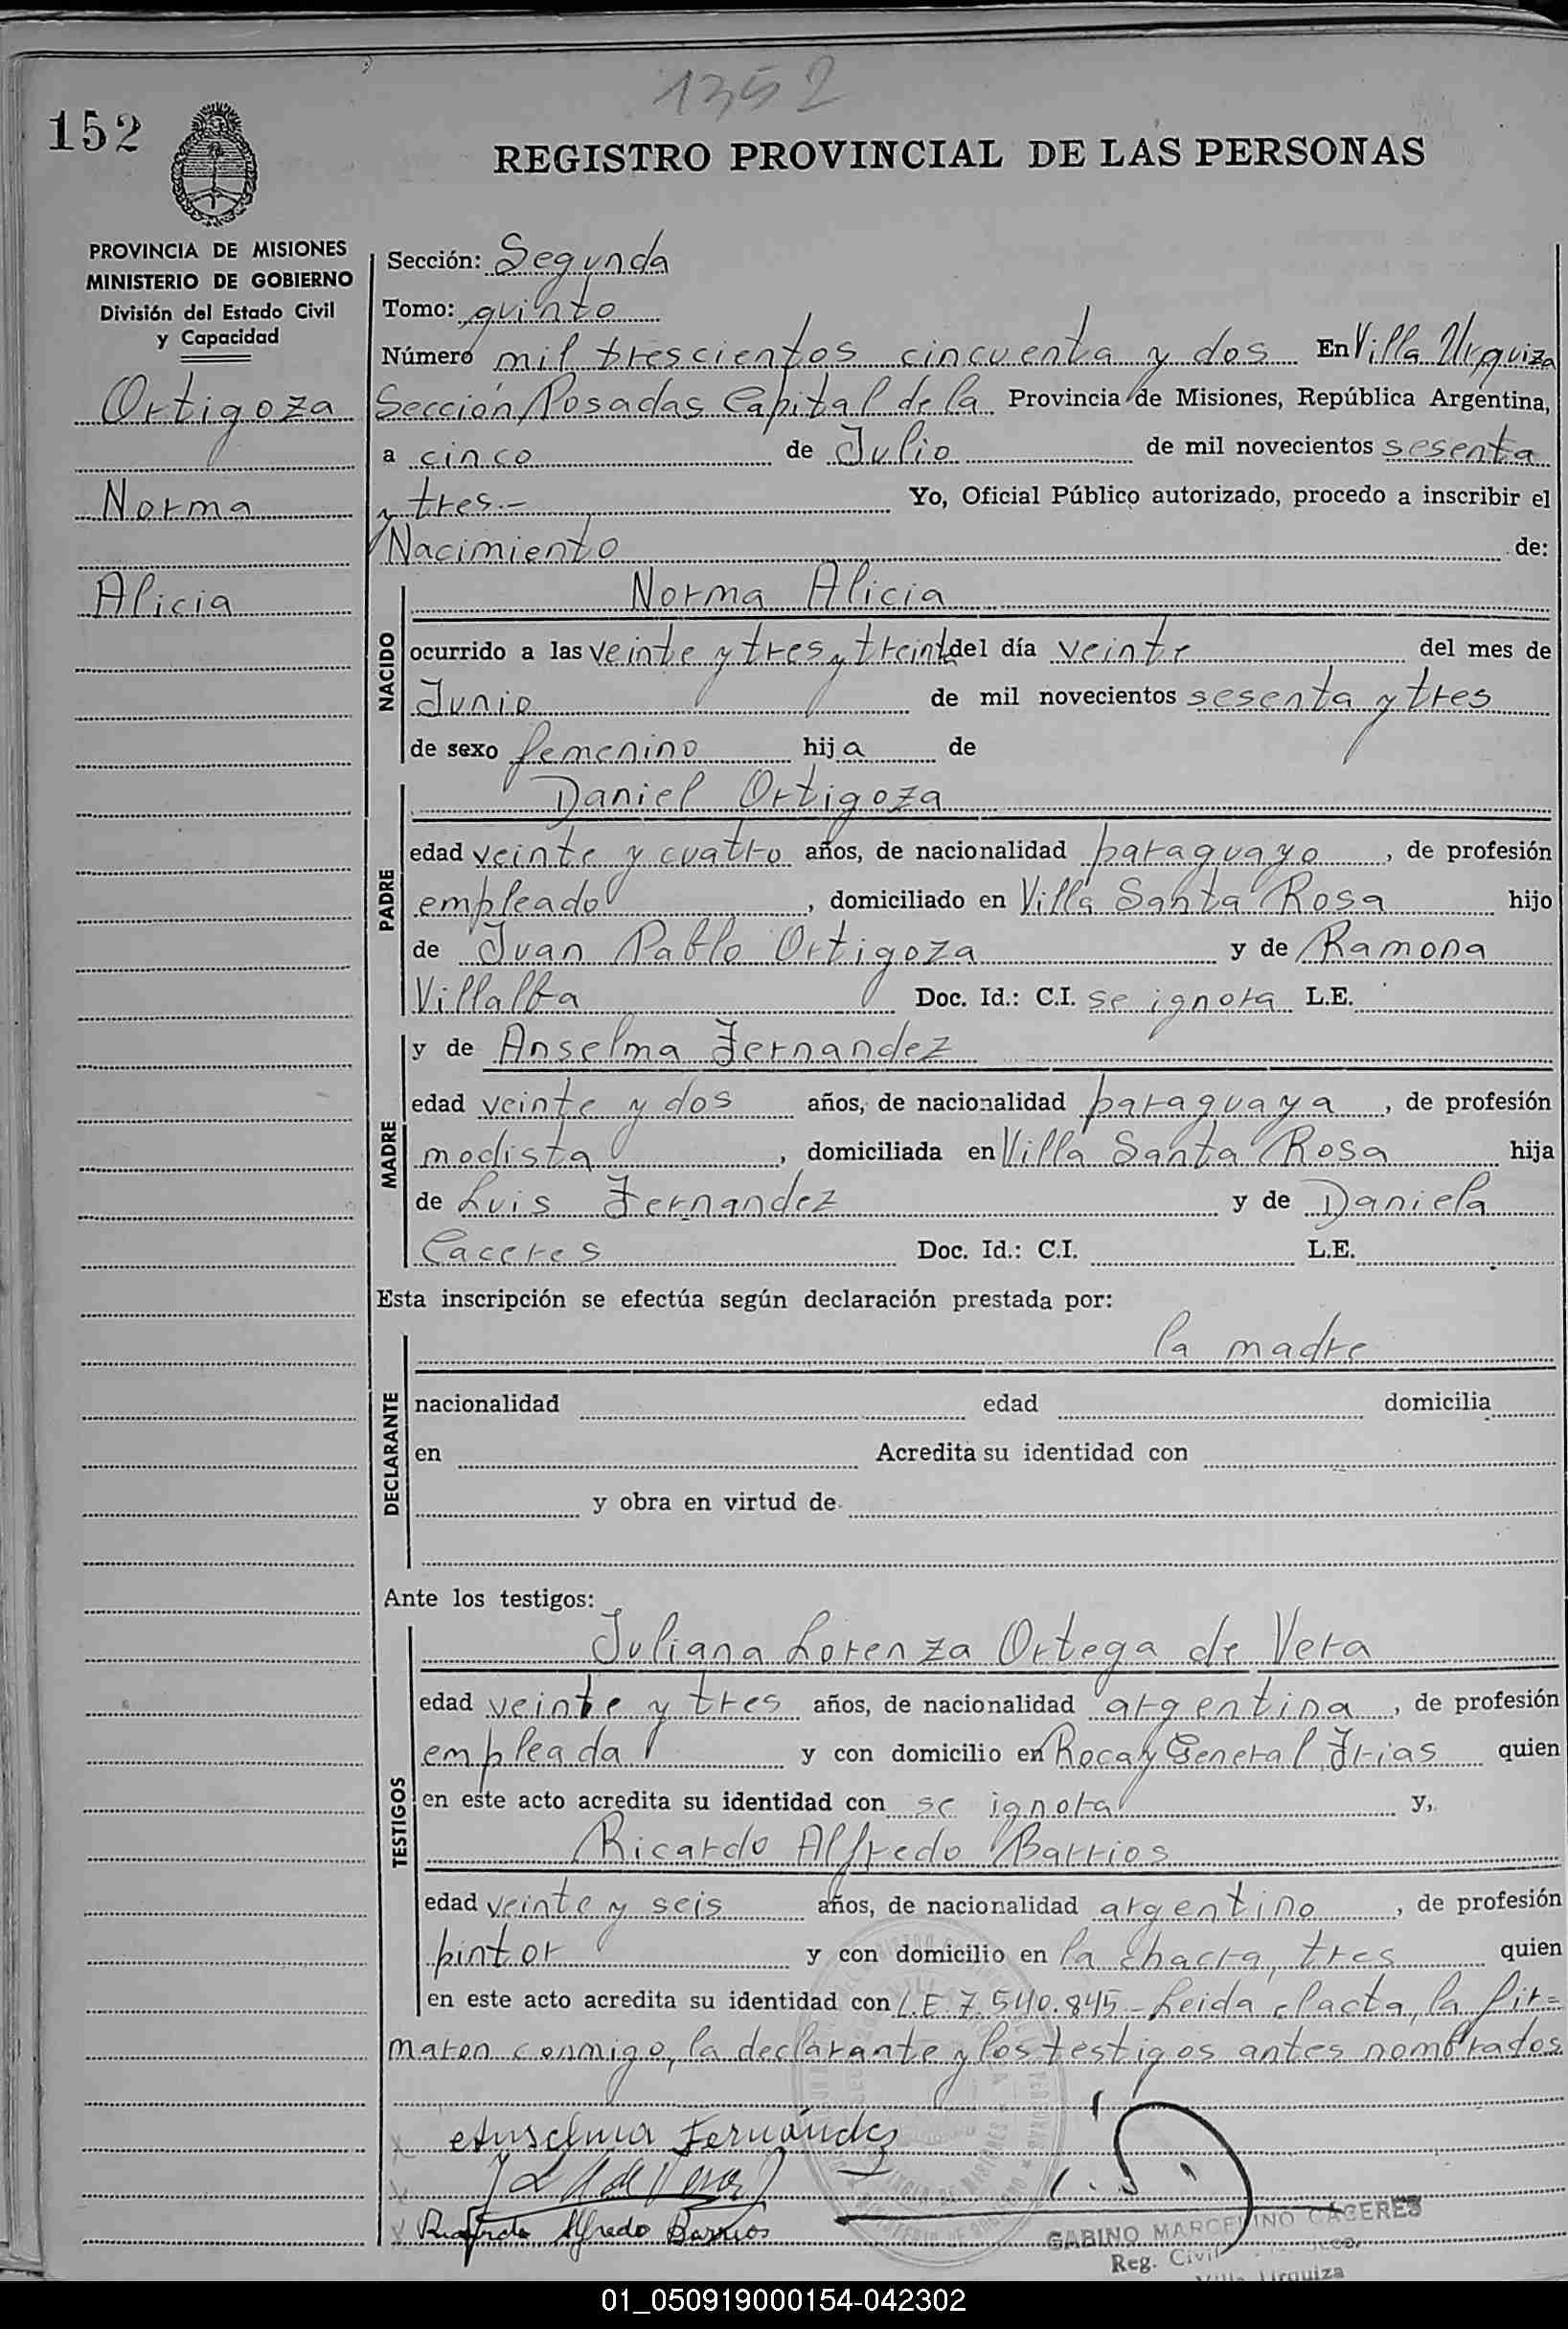 1352
152
REGISTRO PROVINCIAL DE LAS PERSONAS
PROVINCIA DE MISIONES
MINISTERIO DE GOBIERNO
División del Estado Civil
y Capacidad
Ortigoza
Norma
Alicia
Sección: Segunda
Tomo: quinto
Número mil trescientos cincuenta y dos En Villa Urquiza
Sección, Posadas Capital de la Provincia de Misiones, República Argentina,
a cinco de Julio de mil novecientos sesenta
y tres.- Yo, Oficial Público autorizado, procedo a inscribir el
Nacimiento de:
NACIDO
Norma Alicia
ocurrido a las veinte y tres y treinta del día veinte del mes de
Junio de mil novecientos sesenta y tres
de sexo femenino hija de
PADRE
Daniel Ortigoza
edad veinte y cuatro años, de nacionalidad paraguayo, de profesión
empleado, domiciliado en Villa Santa Rosa hijo
de Juan Pablo Ortigoza y de Ramona
Villalba Doc. Id.: C.I. se ignora L.E.
MADRE
y de Anselma Fernandez
edad veinte y dos años, de nacionalidad paraguaya, de profesión
modista, domiciliada en Villa Santa Rosa hija
de Luis Fernandez y de Daniela
Caceres Doc. Id.: C.I. L.E.
Esta inscripción se efectúa según declaración prestada por:
DECLARANTE
la madre
nacionalidad edad domicilia
en Acredita su identidad con
y obra en virtud de
Ante los testigos:
TESTIGOS
Juliana Lorenza Ortega de Vera
edad veinte y tres años, de nacionalidad argentina, de profesión
empleada y con domicilio en Roca y General Frias quien
en este acto acredita su identidad con se ignora y,
Ricardo Alfredo Barrios
edad veinte y seis años, de nacionalidad argentino, de profesión
pintor y con domicilio en la chacra, tres quien
en este acto acredita su identidad con L.E. 7.540.845 - Leida el acta, la fir=
maron conmigo, la declarante y los testigos antes nombrados
Anselma Fernández
Alfredo Barrios
GABINO MARCELINO CACERES
Reg. Civil
Villa Urquiza
01_050919000154-042302